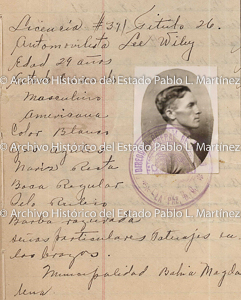 Licencia #391 Título 26.
Automovilista Lee Wiley
Edad 29 años
© Archivo Histórico del Estado Pablo L. Martínez
Masculino
Americana
Color Blanco
© Archivo Histórico del Estado Pablo L. Martínez
Nariz Recta
Boca Regular
Pelo Rubio
© Archivo Histórico del Estado Pablo L. Martínez
Barba rasurada
Señas particulares Tatuajes en
los brazos.
© Archivo Histórico del Estado Pablo L. Martínez
Municipalidad Bahia Magda
lena